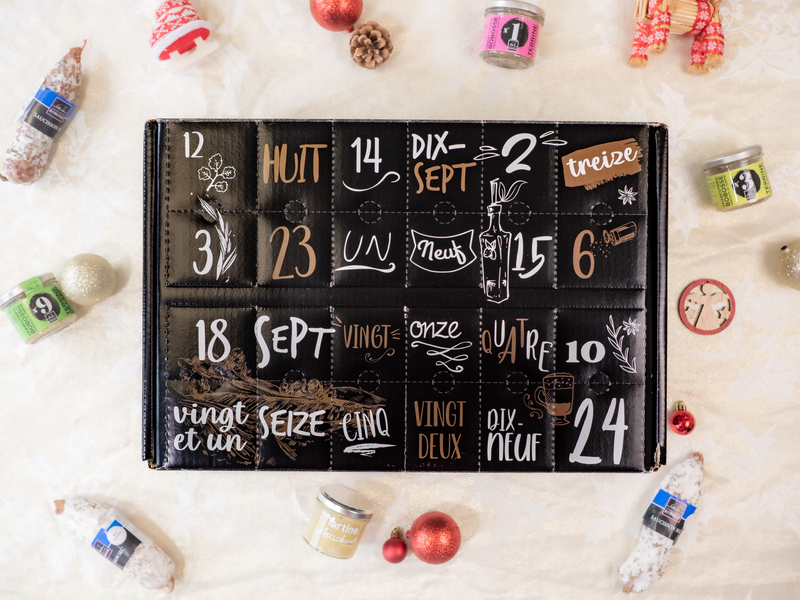 12
HUIT
14
DIX-
SEPT
2
treize
3
23
UN
Neuf
15
6
18
SEPT
VINGT
onze
QUATRE
10
vingt
et un
SEIZE
CINQ
VINGT
DEUX
DIX-
NEUF
24
N°1
BOBOSSE
TERRINE
BOBOSSE
TERRINE
SAUCISSON
Tartine